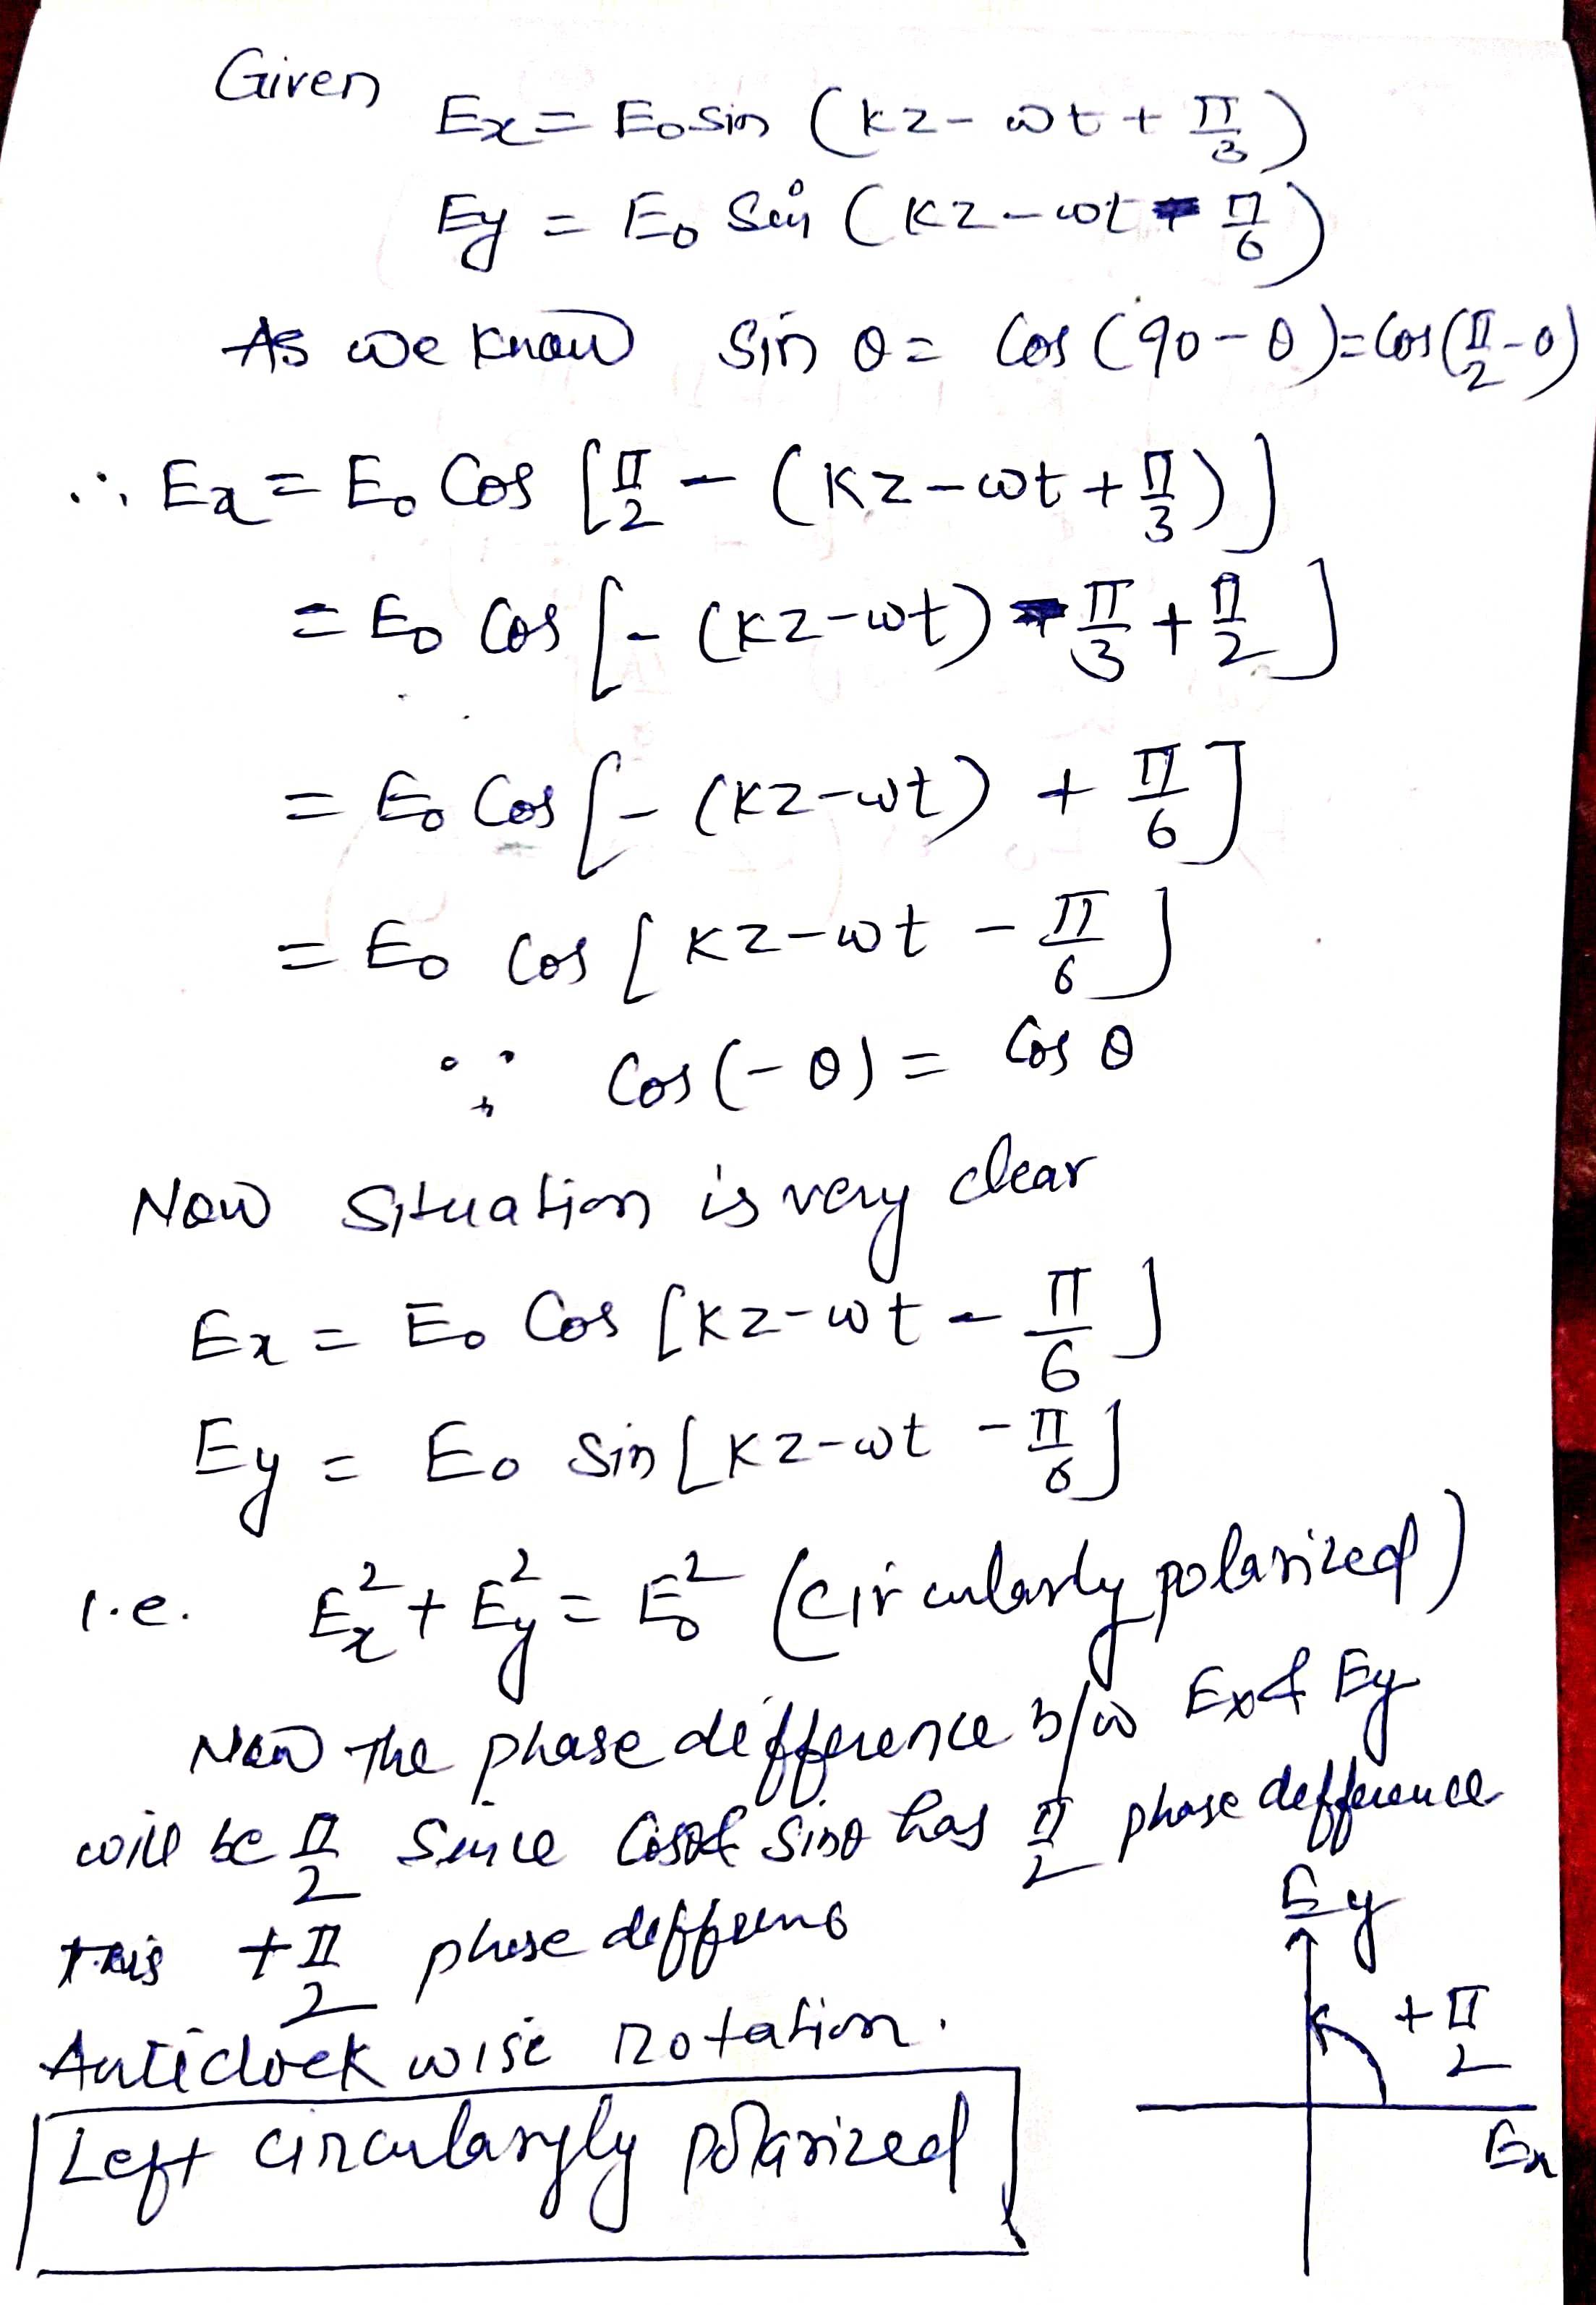 Given
Ex = E0 sin (kz - ωt + π/3)
Ey = E0 Sin (kz - ωt - π/6)
As we know Sin θ = Cos (90 - θ) = Cos (π/2 - θ)
∴ Ex = E0 Cos [π/2 - (kz - ωt + π/3)]
= E0 Cos [- (kz - ωt) - π/3 + π/2]
= E0 Cos [- (kz - ωt) + π/6]
= E0 Cos [kz - ωt - π/6]
∵ Cos (-θ) = Cos θ
Now Situation is very clear
Ex = E0 Cos [kz - ωt - π/6]
Ey = E0 Sin [kz - ωt - π/6]
i.e. Ex² + Ey² = E0² (Circularly polarized)
Now the phase difference b/w Ex & Ey
will be π/2 Since Cosθ & Sinθ has π/2 phase defference
this + π/2 phase
Anticlockwise rotation.
Left circularyly polarized
Ey
+ π/2
Ex